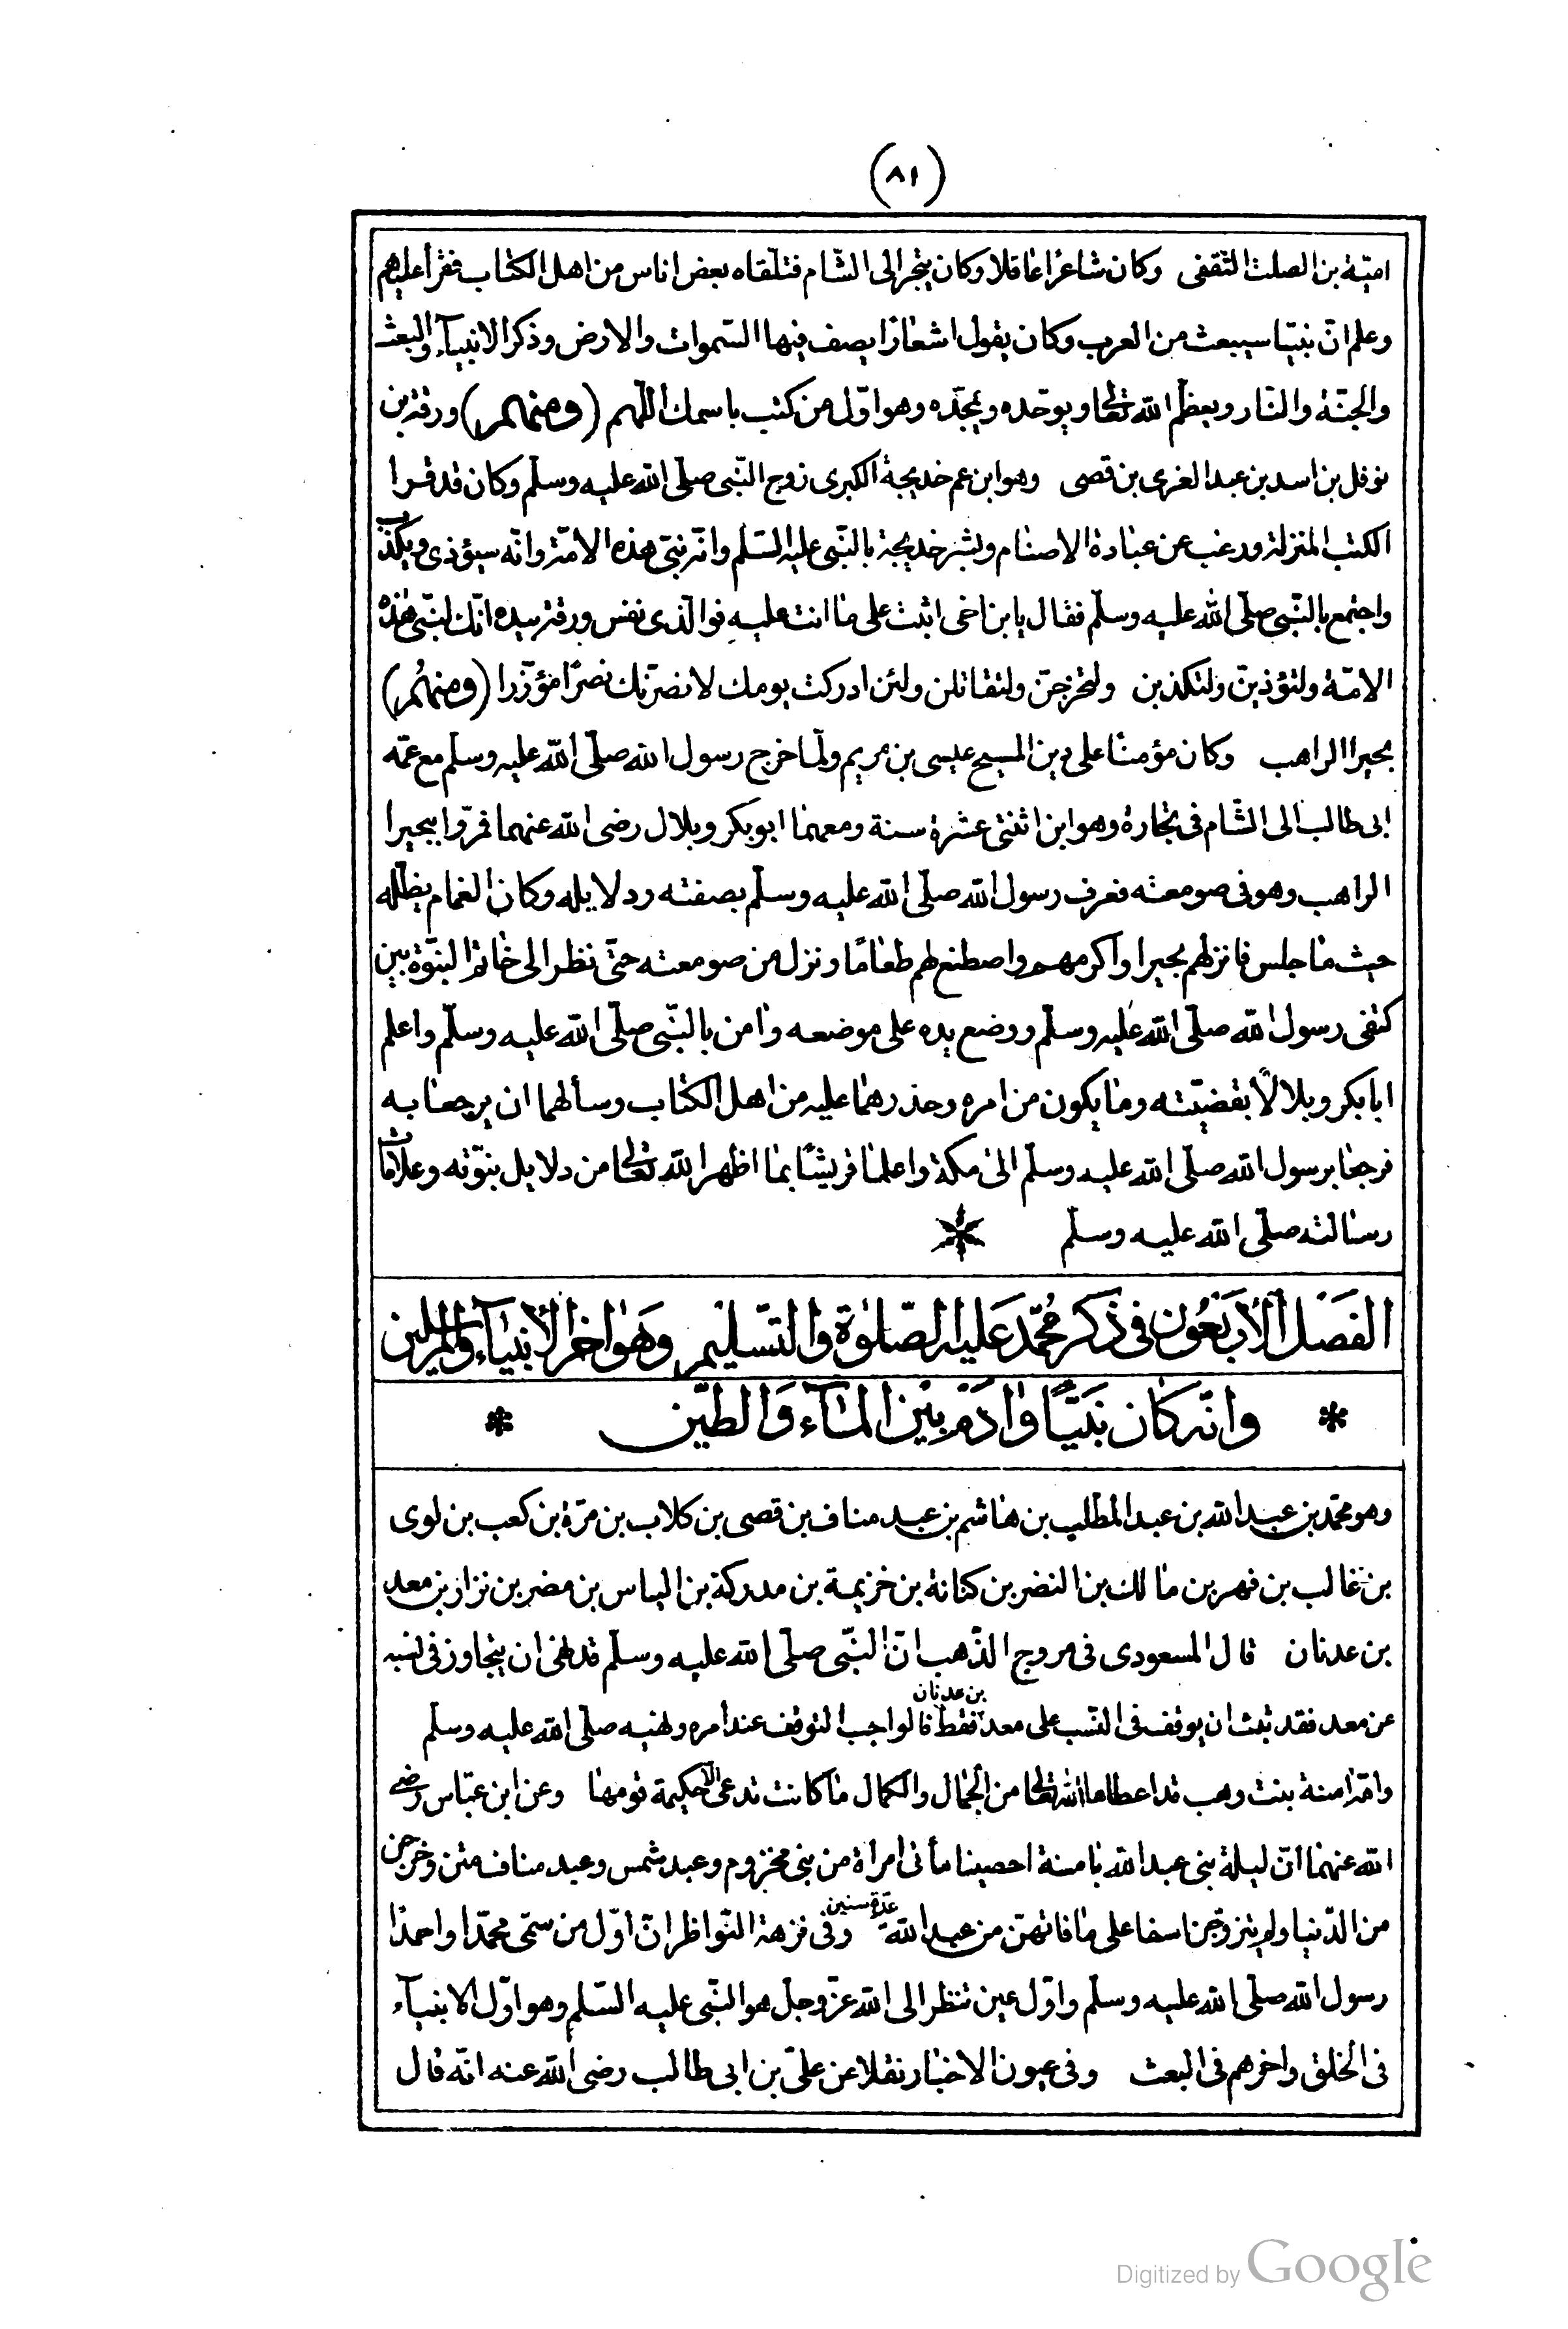 (٨١)
امية بن الصلت الثقفى وكان شاعرا عاقلا وكان يتجر الى الشام فتلقاه بعض اناس من اهل الكتاب فقرأ عليهم
وعلم ان نبيا سيبعث من العرب وكان يقول اشعارا يصف فيها السموات والارض وذكر الانبيآء والبعث
والجنة والنار ويعظم الله تعالى ويوحده ويمجده وهو اول من كتب باسمك اللهم (ومنهم) ورقة بن
نوفل بن اسد بن عبد الغرى بن قصى وهو ابن عم خديجة الكبرى زوج النبى صلى الله عليه وسلم وكان قد قرا
الكتب المنزلة ورغب عن عبادة الاصنام وبشر خديجة بالنبى عليه السلم وانه نبى هذه الامة وانه سيؤذى ويكذب
واجتمع بالنبى صلى الله عليه وسلم فقال يا بن اخى اثبت على ما انت عليه فوالذى نفس ورقة بيده انك لنبى هذه
الامة ولتؤذين ولتكذبن ولتخرجن ولتقاتلن ولئن ادركت يومك لانصرنك نصرا مؤزرا (ومنهم)
بحيرا الراهب وكان مؤمنا على دين المسيح عيسى بن مريم ولما خرج رسول الله صلى الله عليه وسلم مع عمه
ابى طالب الى الشام فى تجارة وهو ابن اثنتى عشرة سنة ومعهما ابو بكر وبلال رضى الله عنهما فمروا ببحيرا
الراهب وهو فى صومعته فعرف رسول الله صلى الله عليه وسلم بصفته ودلايله وكان الغمام يظله
حيث ما جلس فانزلهم بحيرا واكرمهم واصطنع لهم طعاما ونزل من صومعته حتى نظر الى خاتم النبوة بين
كتفى رسول الله صلى الله عليه وسلم ووضع يده على موضعه وامن بالنبى صلى الله عليه وسلم واعلم
ابا بكر وبلالا بقضيته وما يكون من امره وحذرهما عليه من اهل الكتاب وسألهما ان يرجعا به
فرجعا برسول الله صلى الله عليه وسلم الى مكة واعلما قريشا بما اظهر الله تعالى من دلايل نبوته وعلامات
رسالته صلى الله عليه وسلم
الفصل الاربعون فى ذكر محمد عليه الصلوة والتسليم وهو اخر الانبيآء والمرسلين
* وانه كان نبيا وادم بين المآء والطين *
وهو محمد بن عبد الله بن عبد المطلب بن هاشم بن عبد مناف بن قصى بن كلاب بن مرة بن كعب بن لوى
بن غالب بن فهر بن مالك بن النضر بن كنانة بن خزيمة بن مدركة بن الياس بن مضر بن نزار بن معد
بن عدنان قال المسعودى فى مروج الذهب ان النبى صلى الله عليه وسلم قد نهى ان يتجاوز فى نسبه
عن معد فقد ثبت ان يوقف فى النسب على معد بن عدنان فقط فالواجب التوقف عند امره ونهيه صلى الله عليه وسلم
وامه امنة بنت وهب قد اعطاها الله تعالى من الجمال والكمال ما كانت تدعى الا حكيمة قومها وعن ابن عباس رضى
الله عنهما ان ليلة بنى عبد الله بامنة احصينا مأتى امرأة من بنى مخزوم وعبد شمس وعبد مناف متن وخرجن
من الدنيا ولم يتزوجن اسفا على ما فاتهن من عبد الله عدة سنين وفى نزهة النواظر ان اول من سمى محمدا واحمدا
رسول الله صلى الله عليه وسلم واول عين تنظر الى الله عز وجل هو النبى عليه السلم وهو اول الانبيآء
فى الخلق واخرهم فى البعث وفى عيون الاخبار نقلا عن على بن ابى طالب رضى الله عنه انه قال
Digitized by Google